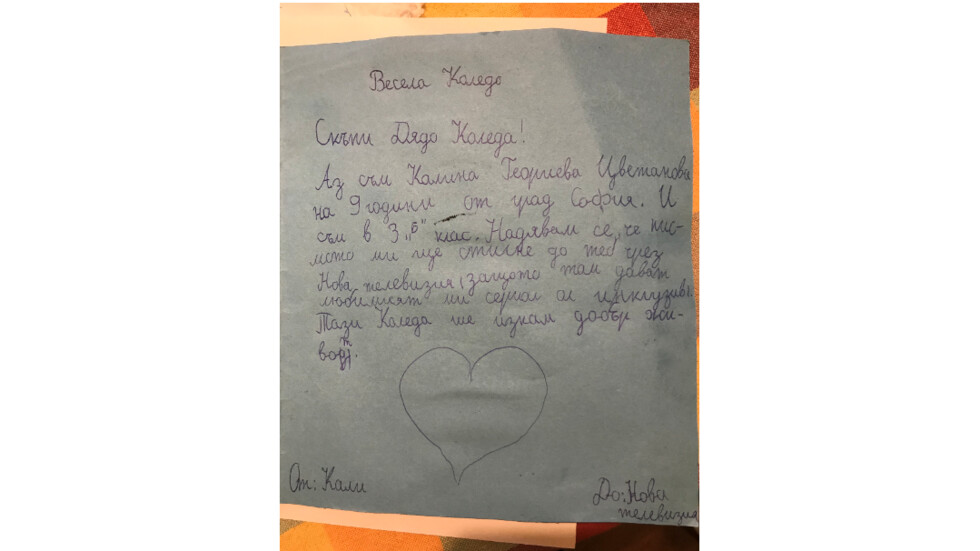 Весела Коледо
Скъпи Дядо Коледа!
Аз съм Калина Георгиева Цветанова
на 9 години от град София. И
съм в 3 „б" клас. Надявам се, че пис-
мото ми ще стигне до теб чрез
Нова телевизия, защото там дават
любимият ми сериал ол инклузив.
Тази Коледа ще искам добър жи-
вот.
От: Кали
До: Нова
телевизия